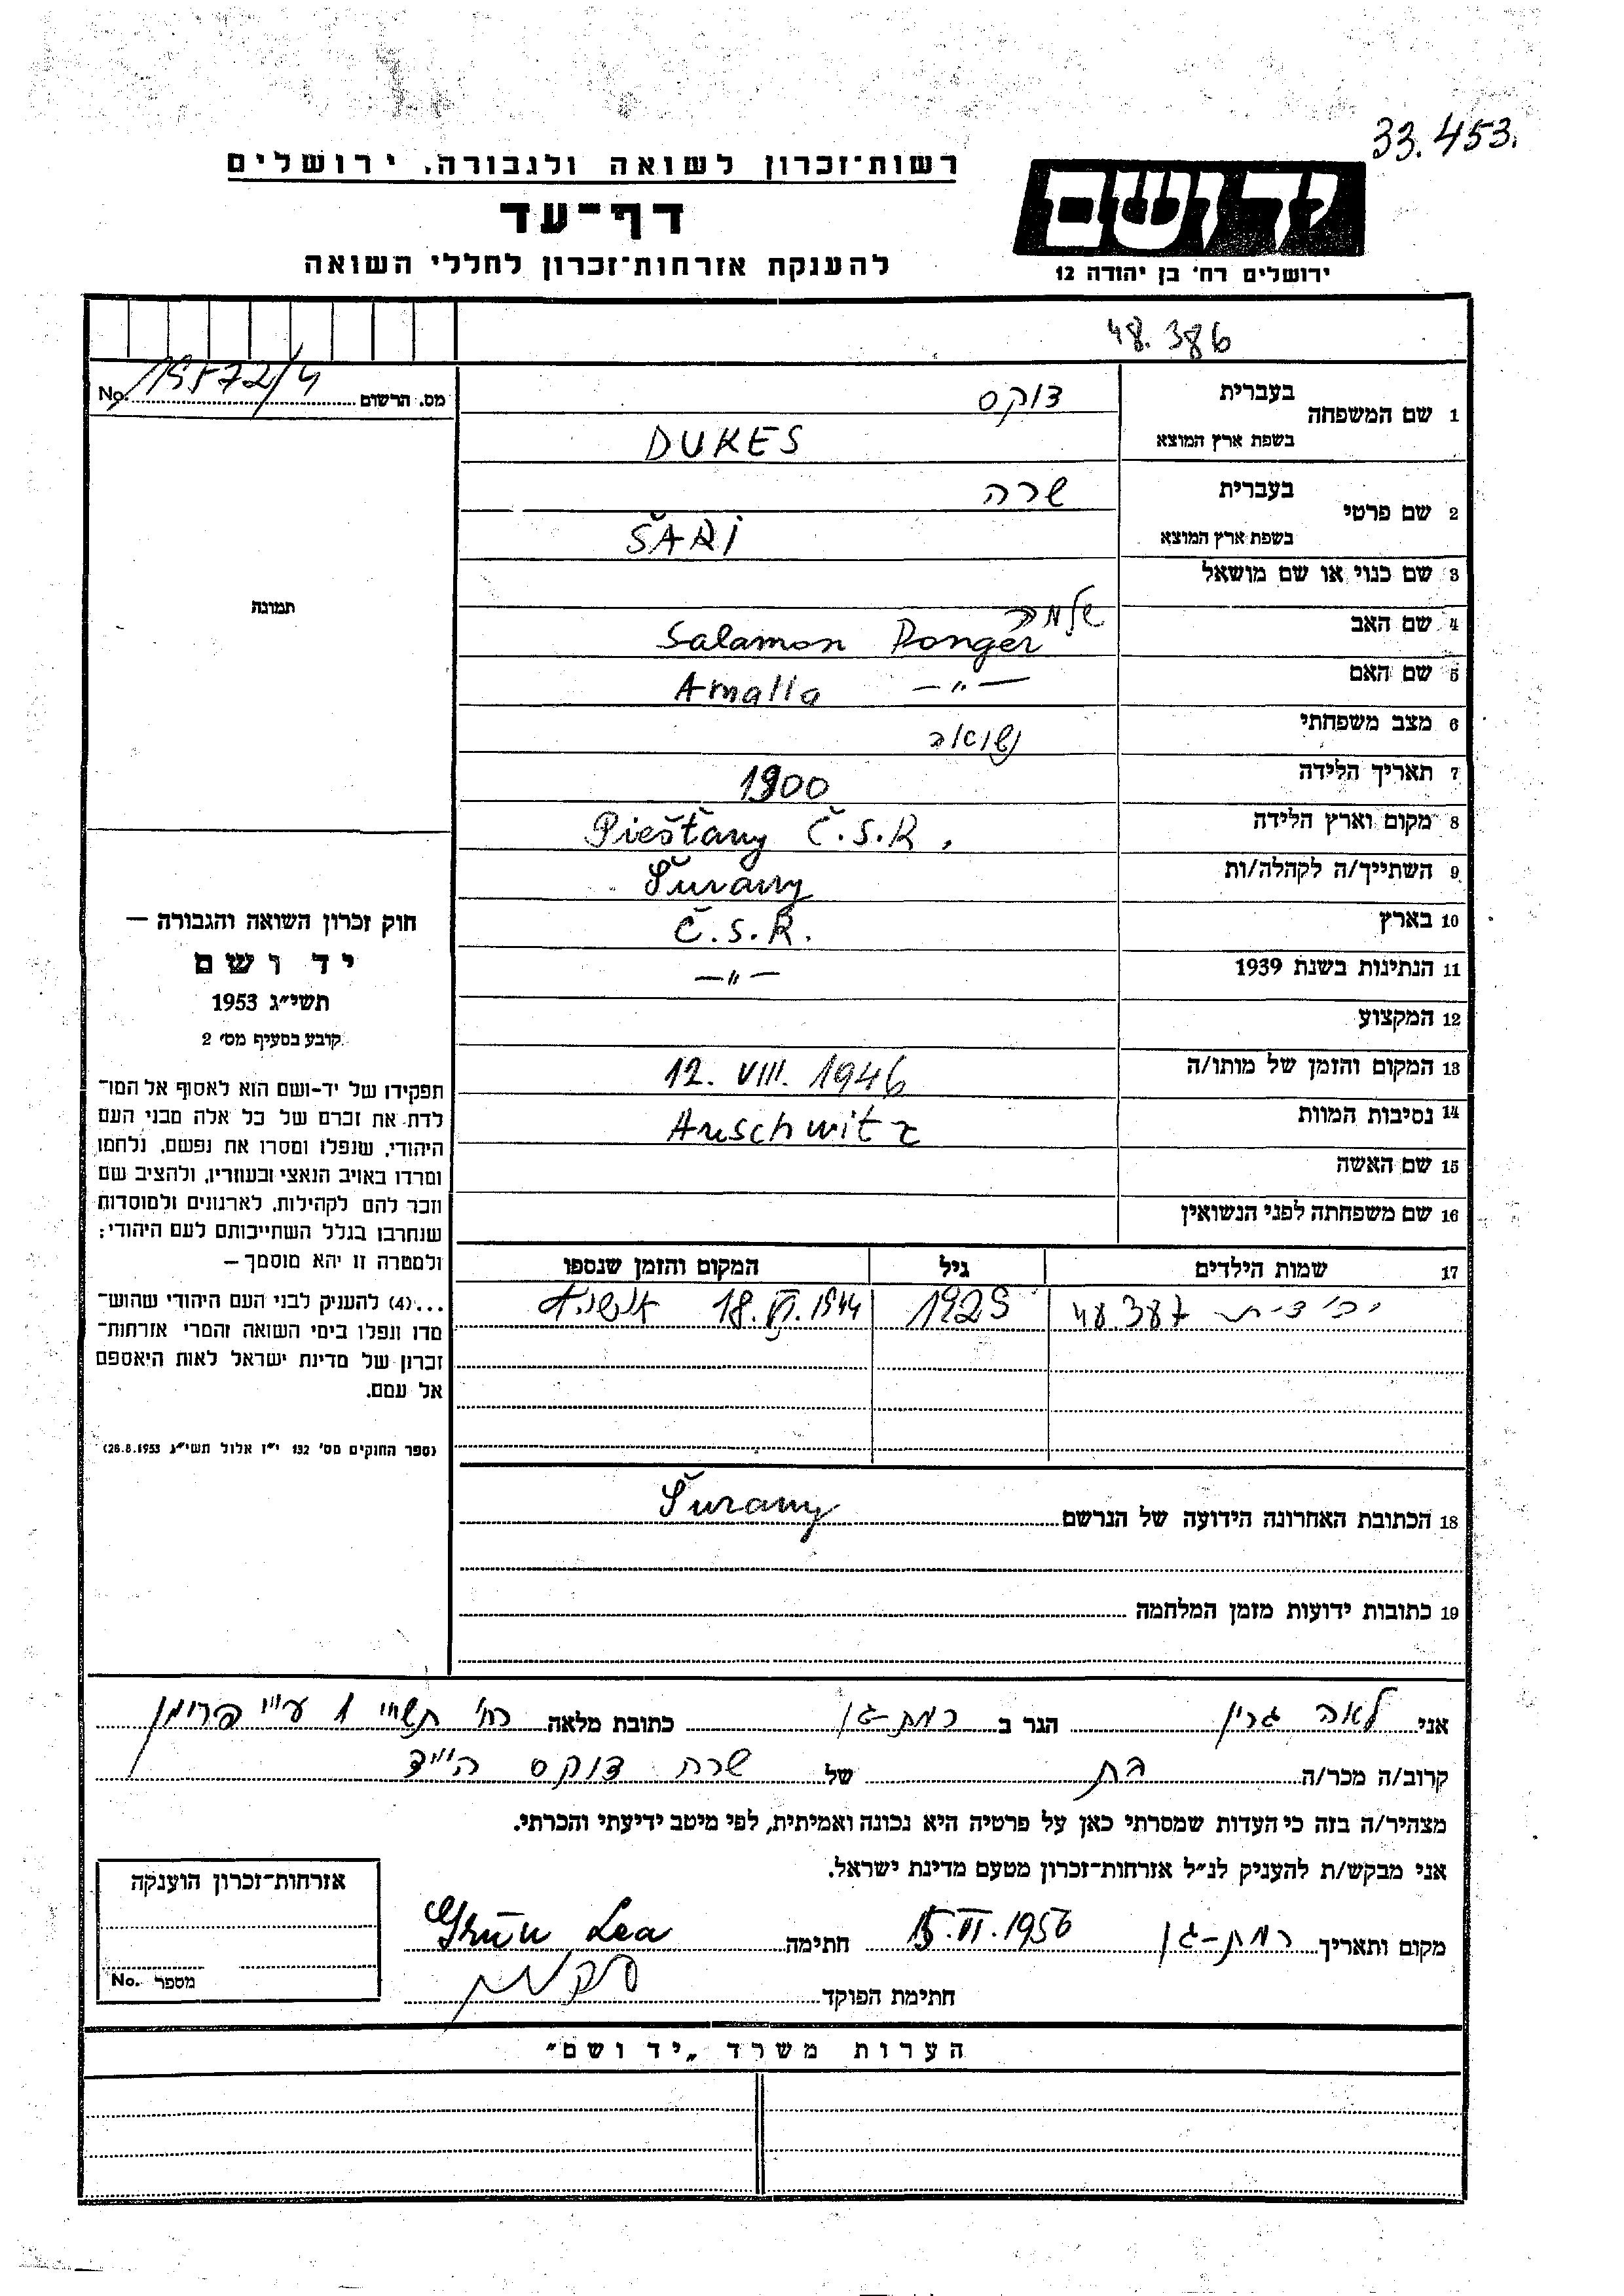 33.453.
רשות־זכרון לשואה ולגבורה, ירושלים
דף־עד
להענקת אזרחות־זכרון לחללי השואה
יד ושם
ירושלים רח' בן יהודה 12
48.386
מס. הרשום No.
1 שם המשפחה בעברית דוקס
בשפת ארץ המוצא DUKES
2 שם פרטי בעברית שרה
בשפת ארץ המוצא ŠARI
3 שם כנוי או שם מושאל
תמונה
4 שם האב Salamon Ponger
5 שם האם Amalia —„—
6 מצב משפחתי נשואה
7 תאריך הלידה 1900
8 מקום וארץ הלידה Piešťany Č.S.R.
9 השתייך/ה לקהלה/ות Šurany
10 בארץ Č.S.R.
11 הנתינות בשנת 1939 —„—
12 המקצוע
13 המקום והזמן של מותו/ה 12. VIII. 1946
14 נסיבות המוות Auschwitz
15 שם האשה
16 שם משפחתה לפני הנשואין
17 שמות הילדים גיל המקום והזמן שנספו
יהודית 48 387 1929 18. VI. 1944 אושויץ
חוק זכרון השואה והגבורה —
יד ושם
תשי״ג 1953
קובע בסעיף מס' 2
תפקידו של יד-ושם הוא לאסוף אל המו־
לדת את זכרם של כל אלה מבני העם
היהודי, שנפלו ומסרו את נפשם, נלחמו
ומרדו באויב הנאצי ובעוזריו, ולהציב שם
וזכר להם לקהילות, לארגונים ולמוסדות
שנחרבו בגלל השתייכותם לעם היהודי;
ולמטרה זו יהא מוסמך —
...(4) להעניק לבני העם היהודי שהוש־
מדו ונפלו בימי השואה והמרי אזרחות־
זכרון של מדינת ישראל לאות היאספם
אל עמם.
(ספר החוקים מס' 132 י״ז אלול תשי״ג 28.8.1953)
18 הכתובת האחרונה הידועה של הנרשם Šurany
19 כתובות ידועות מזמן המלחמה
אני לאה גרין הגר ב רמת-גן כתובת מלאה רח' תש״ח 1 ע״י פרוימן
קרוב/ה מכר/ה בת של שרה דוקס הי״ד
מצהיר/ה בזה כי העדות שמסרתי כאן על פרטיה היא נכונה ואמיתית, לפי מיטב ידיעתי והכרתי.
אני מבקש/ת להעניק לנ״ל אזרחות-זכרון מטעם מדינת ישראל.
מקום ותאריך רמת-גן 15. VI. 1956 חתימה Grün Lea
חתימת הפוקד
אזרחות־זכרון הוענקה
מספר No.
הערות משרד „יד ושם״